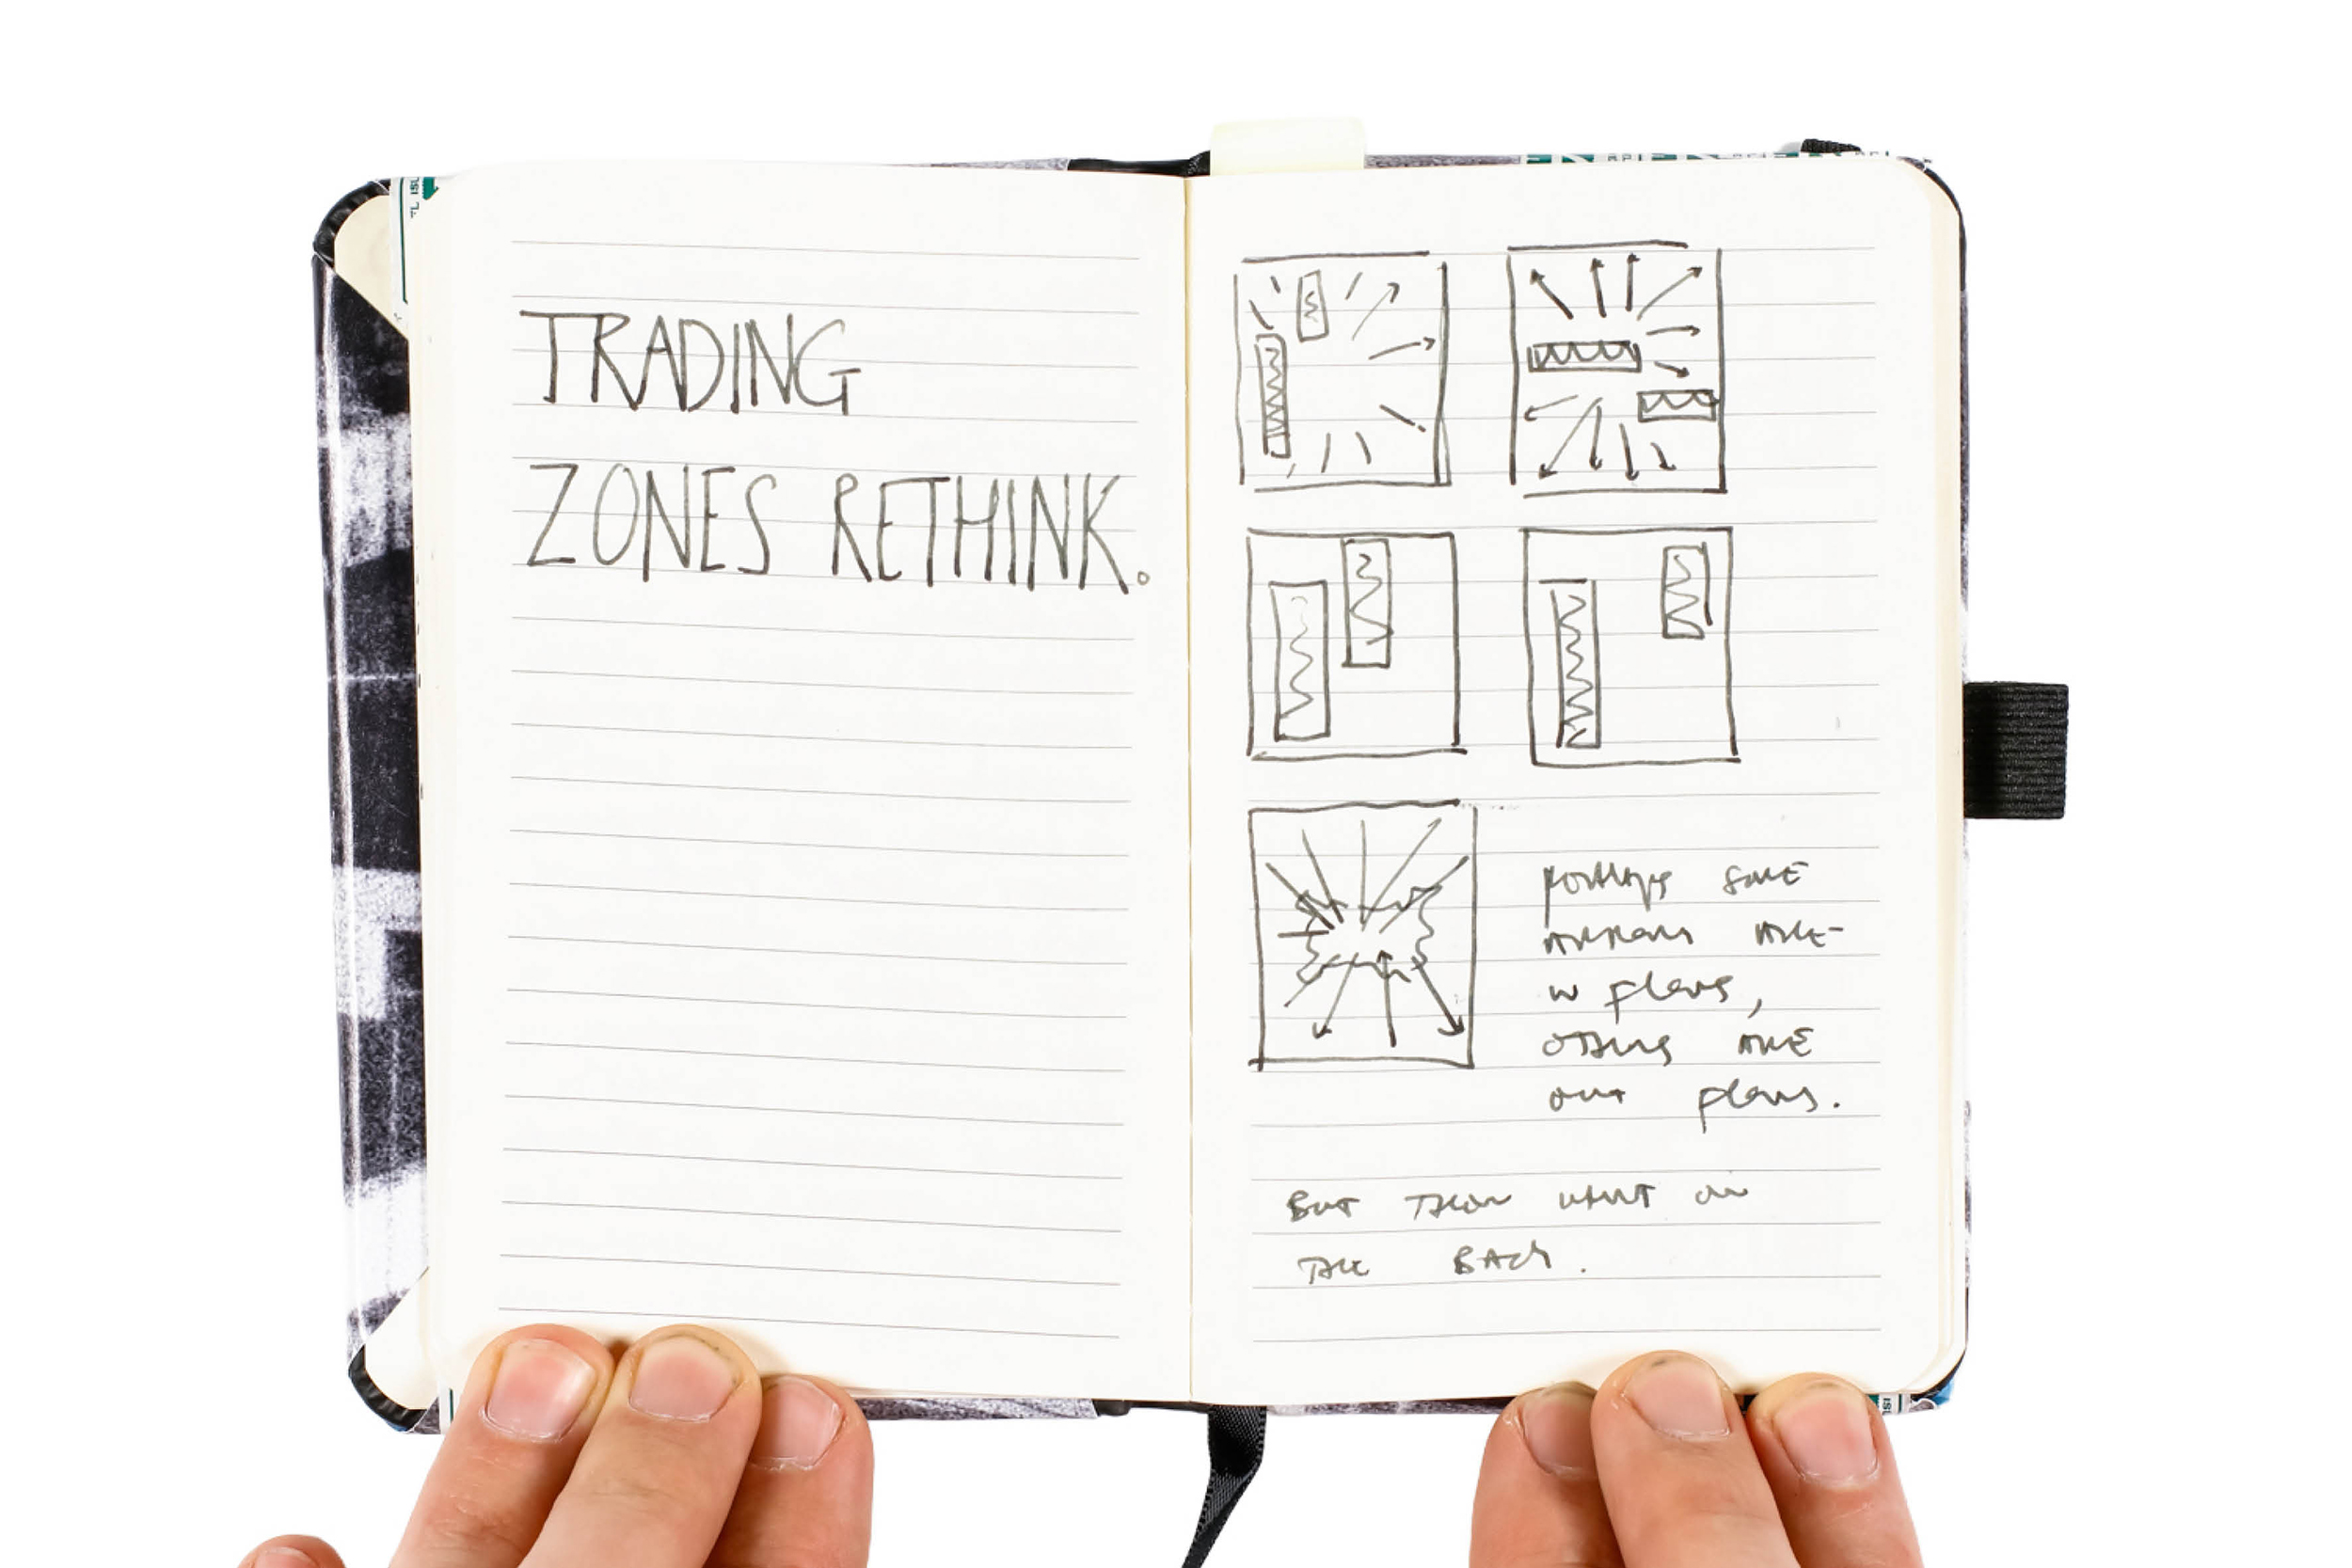 TRADING
ZONES RETHINK.
perhaps some
arrows are
in plans,
others are
out plans.
But then what on
the back.